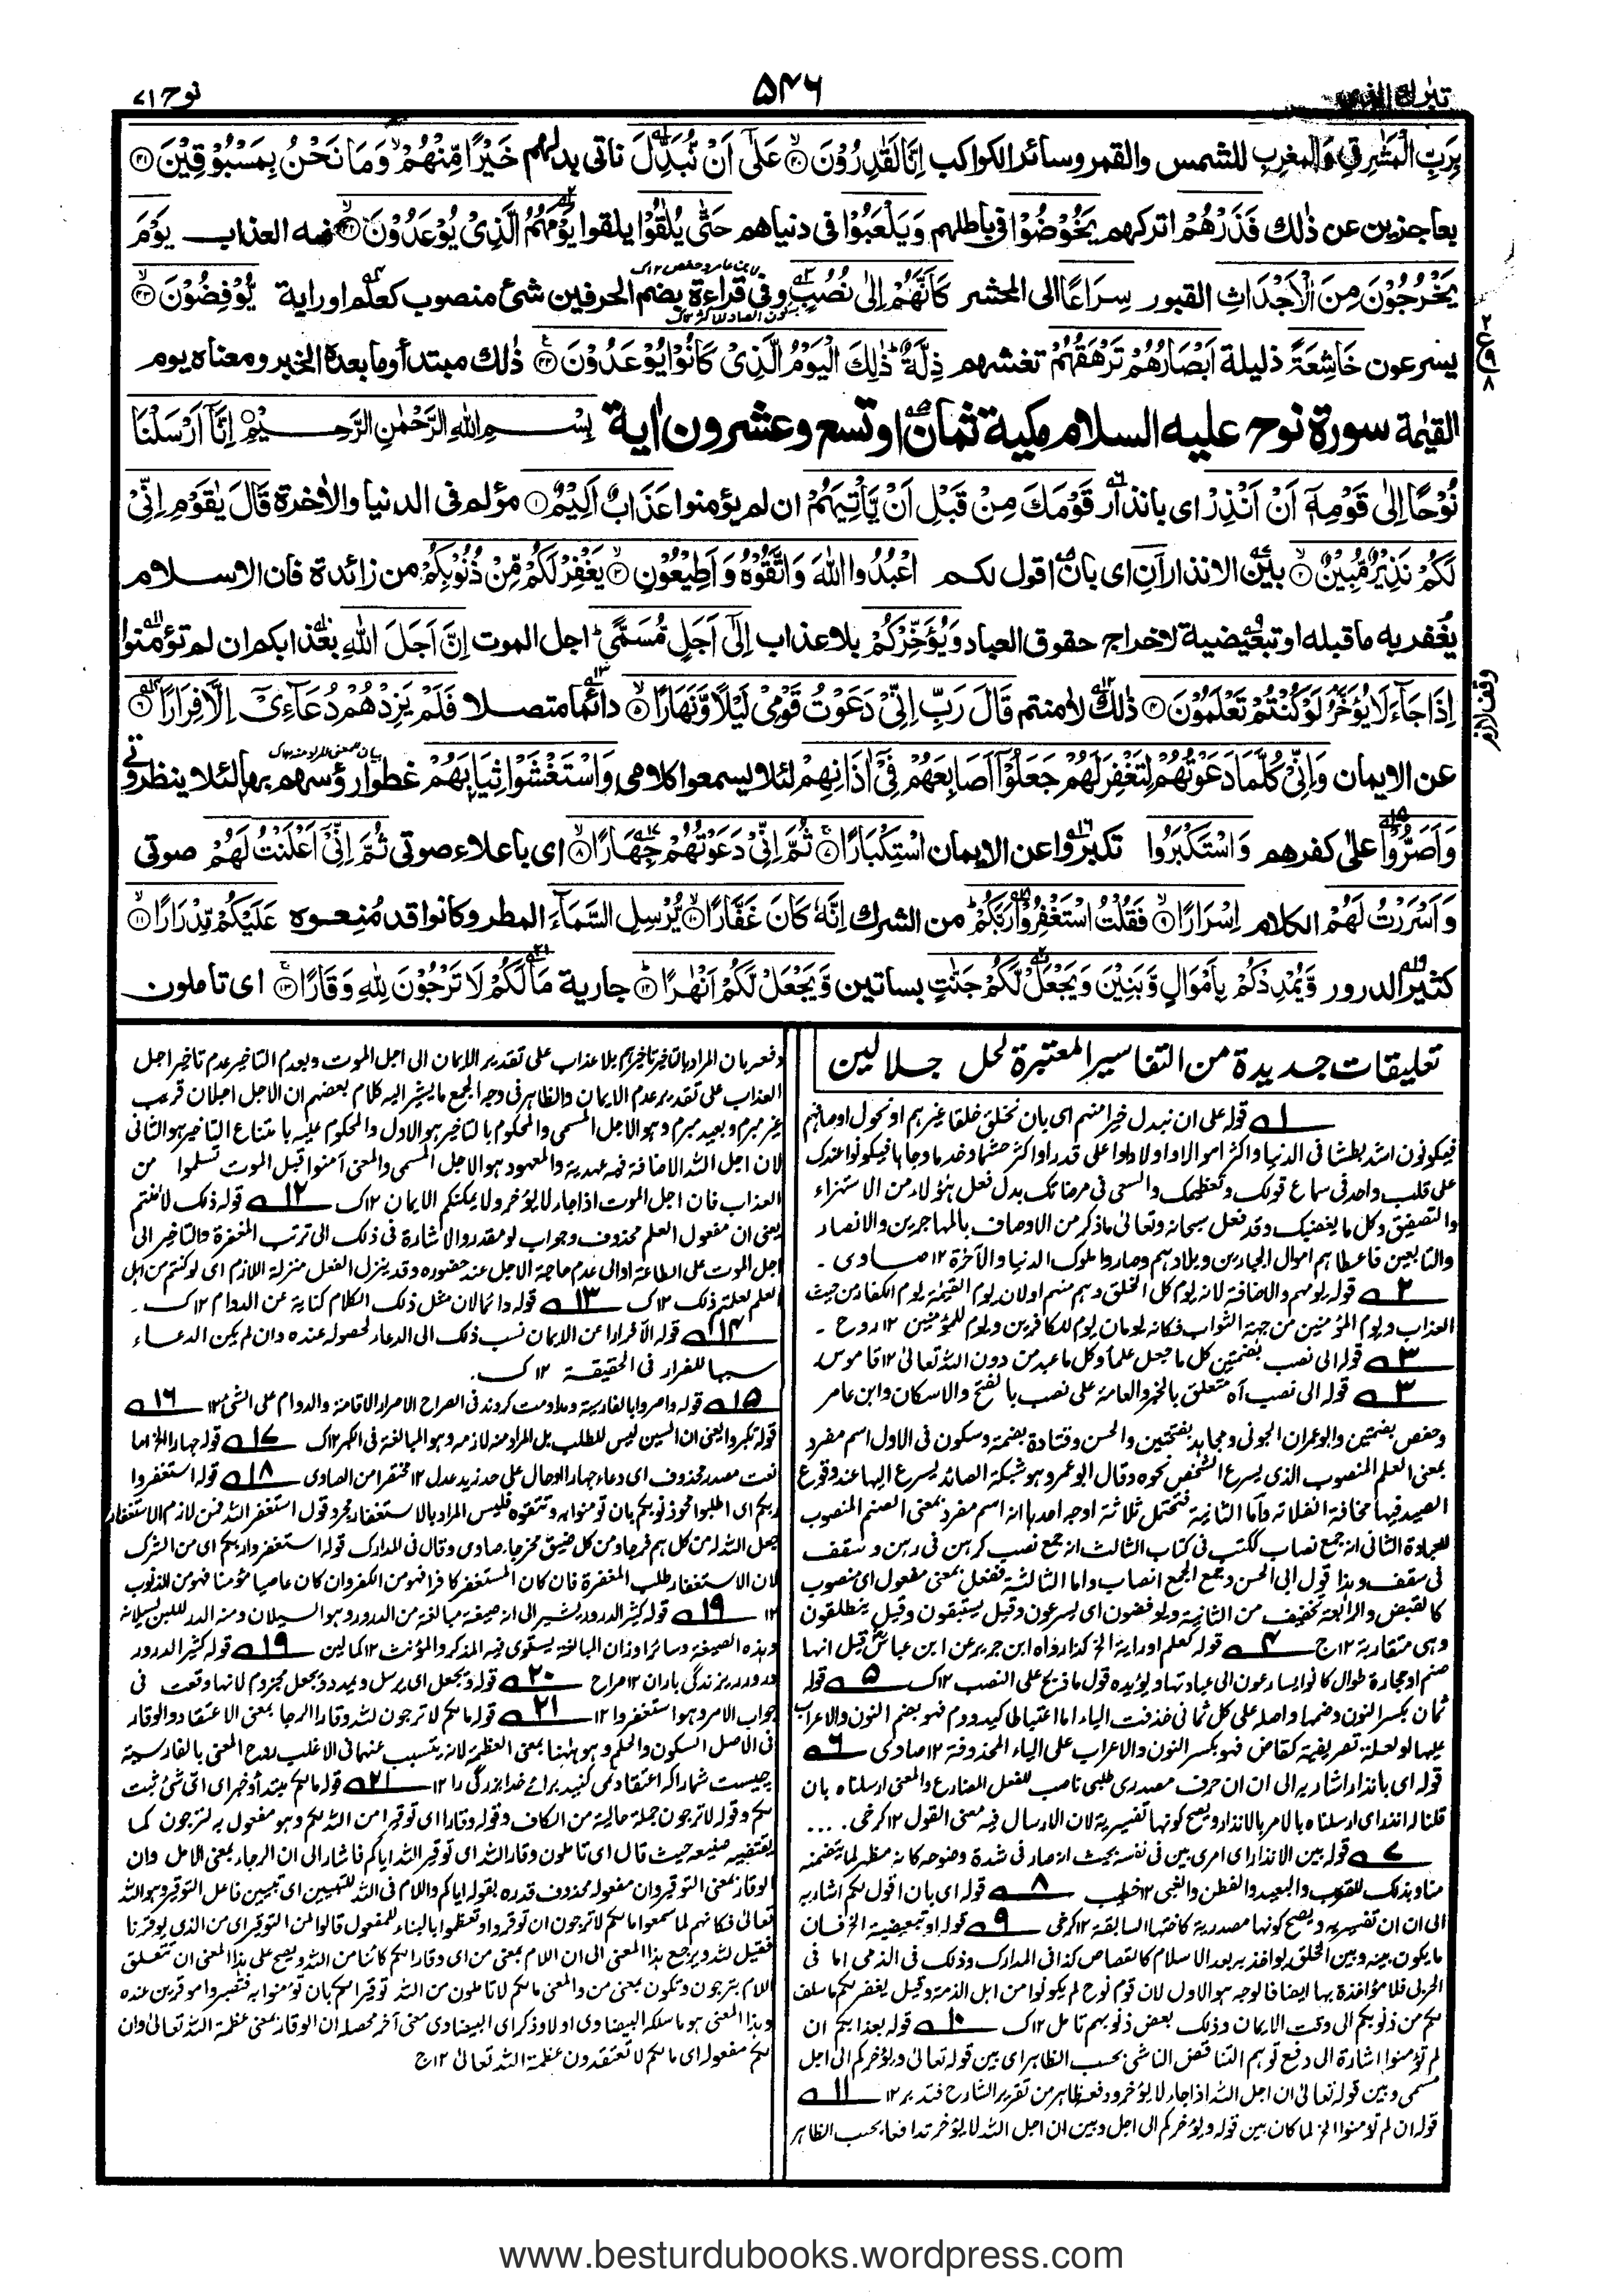 تبارك الذي
۵۴۶
نوح ۷۱
بِرَبِّ الْمَشٰرِقِ وَالْمَغٰرِبِ للشمس والقمر وسائر الكواكب اِنَّا لَقٰدِرُوْنَ ۴۰ عَلٰٓى اَنْ نُّبَدِّلَ ناتى بدلهم خَيْرًا مِّنْهُمْ وَمَا نَحْنُ بِمَسْبُوْقِيْنَ ۴۱
بعاجزين عن ذٰلك فَذَرْهُمْ اتركهم يَخُوْضُوْا فى باطلهم وَيَلْعَبُوْا فى دنياهم حَتّٰى يُلٰقُوْا يلقوا يَوْمَهُمُ الَّذِىْ يُوْعَدُوْنَ ۴۲ فيه العذاب يَوْمَ
يَخْرُجُوْنَ مِنَ الْاَجْدَاثِ القبور سِرَاعًا الى المحشر كَاَنَّهُمْ اِلٰى نُصُبٍ وفى قراءة بضم الحرفين شئ منصوب كعلم او راية يُّوْفِضُوْنَ ۴۳
يسرعون خَاشِعَةً ذليلة اَبْصَارُهُمْ تَرْهَقُهُمْ تغشهم ذِلَّةٌ ذٰلِكَ الْيَوْمُ الَّذِىْ كَانُوْا يُوْعَدُوْنَ ۴۴ ذٰلك مبتدأ وما بعده الخبر ومعناه يوم
القيٰمة سورة نوح عليه السلام مكية ثمان او تسع وعشرون اٰية بِسْمِ اللهِ الرَّحْمٰنِ الرَّحِيْمِ اِنَّآ اَرْسَلْنَا
نُوْحًا اِلٰى قَوْمِهٖٓ اَنْ اَنْذِرْ اى بانذار قَوْمَكَ مِنْ قَبْلِ اَنْ يَّاْتِيَهُمْ ان لم يؤمنوا عَذَابٌ اَلِيْمٌ ۱ مؤلم فى الدنيا والاٰخرة قَالَ يٰقَوْمِ اِنِّىْ
لَكُمْ نَذِيْرٌ مُّبِيْنٌ ۲ بيّن الانذار اَنِ اى بان اقول لكم اعْبُدُوا اللهَ وَاتَّقُوْهُ وَاَطِيْعُوْنِ ۳ يَغْفِرْ لَكُمْ مِّنْ ذُنُوْبِكُمْ من زائدة فان الاسلام
يغفر به ما قبله او تبعيضية لاخراج حقوق العباد وَيُؤَخِّرْكُمْ بلا عذاب اِلٰٓى اَجَلٍ مُّسَمًّى اجل الموت اِنَّ اَجَلَ اللهِ بعذابكم ان لم تؤمنوا
اِذَا جَآءَ لَا يُؤَخَّرُ لَوْ كُنْتُمْ تَعْلَمُوْنَ ۴ ذٰلك لاٰمنتم قَالَ رَبِّ اِنِّىْ دَعَوْتُ قَوْمِىْ لَيْلًا وَّنَهَارًا ۵ دائما متصلا فَلَمْ يَزِدْهُمْ دُعَآءِىْٓ اِلَّا فِرَارًا ۶
عن الايمان وَاِنِّىْ كُلَّمَا دَعَوْتُهُمْ لِتَغْفِرَ لَهُمْ جَعَلُوْٓا اَصَابِعَهُمْ فِىْٓ اٰذَانِهِمْ لئلا يسمعوا كلامى وَاسْتَغْشَوْا ثِيَابَهُمْ غطوا رؤسهم بها لئلا ينظرونى
وَاَصَرُّوْا على كفرهم وَاسْتَكْبَرُوا تكبروا عن الايمان اسْتِكْبَارًا ۷ ثُمَّ اِنِّىْ دَعَوْتُهُمْ جِهَارًا ۸ اى باعلاء صوتى ثُمَّ اِنِّىْٓ اَعْلَنْتُ لَهُمْ صوتى
وَاَسْرَرْتُ لَهُمْ الكلام اِسْرَارًا ۹ فَقُلْتُ اسْتَغْفِرُوْا رَبَّكُمْ من الشرك اِنَّهٗ كَانَ غَفَّارًا ۱۰ يُّرْسِلِ السَّمَآءَ المطر وكانوا قد مُنِعوه عَلَيْكُمْ مِّدْرَارًا ۱۱
كثير الدرور وَّيُمْدِدْكُمْ بِاَمْوَالٍ وَّبَنِيْنَ وَيَجْعَلْ لَّكُمْ جَنّٰتٍ بساتين وَّيَجْعَلْ لَّكُمْ اَنْهٰرًا ۱۲ جارية مَا لَكُمْ لَا تَرْجُوْنَ لِلّٰهِ وَقَارًا ۱۳ اى تاملون
وقف لازم
تعليقات جديدة من التفاسير المعتبرة لحل جلالين
۱ قوله على ان نبدل خيرا منهم اى بان نخلق خلقا غيرهم او نحول اوصافهم
فيكونون اشد بطشا فى الدنيا واكثر اموالا واولادا واعلى قدرا واكثر حشما وخدما وجاها فيكونوا عندك
على قلب واحد فى سماع قولك وتعظيمك والسعى فى مرضاتك بدل فعل هؤلاء من الاستهزاء
والتصفيق وكل ما يغضبك وقد فعل سبحانه وتعالى ما ذكر من الاوصاف بالمهاجرين والانصار
والتابعين فاعطاهم اموال الجبارين وبلادهم وصاروا ملوك الدنيا والآخرة ۱۲ صاوى ۔
۲ قوله يومهم والاضافة لانه يوم كل الخلق وهم منهم او لان يوم القيٰمة يوم الكفار من حيث
العذاب ويوم المؤمنين من جهة الثواب فكانه يومان يوم للكافرين ويوم للمؤمنين ۱۲ روح ۔
۳ قوله الى نصب بضمتين كل ما جعل علما وكل ما عبد من دون الله تعالى ۱۲ قاموس
۳ قوله الى نصب اٰه متعلق بالخبر والعامة على نصب بالفتح والاسكان وابن عامر
وحفص بضمتين وابو عمران الجونى ومجاهد بفتحتين والحسن وقتادة بضمة وسكون فى الاول اسم مفرد
بمعنى العلم المنصوب الذى يسرع الشخص نحوه وقال ابو عمرو هو شبكة الصائد يسرع اليها عند وقوع
الصيد فيها مخافة انفلاته واما الثانية فتحتمل ثلاثة اوجه احدها انه اسم مفرد بمعنى الصنم المنصوب
للعبادة الثانى انه جمع نصاب ككتب فى كتاب الثالث انه جمع نصب كرهن فى رهن وسقف
فى سقف وهذا قول ابى الحسن وجمع الجمع انصاب واما الثالثة ففعل بمعنى مفعول اى منصوب
كالقبض والرابعة تخفيف من الثانية ويوفضون اى يسرعون وقيل يستبقون وقيل ينطلقون
وهى متقاربة ۱۲ ج ۴ قوله كعلم او راية الخ كذا رواه ابن جرير عن ابن عباس قيل انها
صنم او حجارة طوال كانوا يسارعون الى عبادتها ويؤيده قوله ما ذبح على النصب ۱۲ ك ۵ قوله
ثمان بكسر النون وضمها واصله على كل ثمانى فحذفت الياء اما اعتباطا كيد ودم فهو بضم النون والاعراب
عليها او لعلة تصريفية كقاض فهو بكسر النون والاعراب على الياء المحذوفة ۱۲ صاوى ۶
قوله اى بانذار اشار به الى ان ان حرف مصدرى طلبى ناصب للفعل المضارع والمعنى ارسلناه بان
قلنا له انذر اى ارسلناه بالامر بالانذار ويصح كونها تفسيرية لان الارسال فيه معنى القول ۱۲ كرخى
۷ قوله بين الانذار اى امرى بين فى نفسه بحيث انه صار فى شدة وضوحه كانه مظهر لما يتضمنه
مناد بذلك للقريب والبعيد والفطن والغبى ۱۲ خطيب ۸ قوله اى بان اقول لكم اشار به
الى ان ان تفسيرية ويصح كونها مصدرية كاختها السابقة ۱۲ كرخى ۹ قوله او تبعيضية الخ فان
ما يكون بينه وبين الخلق يواخذ به بعد الاسلام كالقصاص كذا فى المدارك وذلك فى الذمى اما فى
الحربى فلا مؤاخذة بها ايضا فالوجه هو الاول لان قوم نوح لم يكونوا من اهل الذمة وقيل يغفر لكم ما سلف
لكم من ذنوبكم الى وقت الايمان وذلك بعض ذنوبهم تامل ۱۲ ك ۱۰ قوله بعذابكم ان
لم تؤمنوا اشارة الى دفع توهم التناقض الناشى بحسب الظاهر اى بين قوله تعالى ويؤخركم الى اجل
مسمى وبين قوله تعالى ان اجل الله اذا جاء لا يؤخر ودفعه ظاهر من تقرير الشارح فتدبر ۱۲ ۱۱
قوله ان لم تؤمنوا الخ لما كان بين قوله ويؤخركم الى اجل وبين ان اجل الله لا يؤخر تدافعا بحسب الظاهر
دفعه بان المراد بالتاخير تاخيرهم بلا عذاب على تقدير الايمان الى اجل الموت وبعدم التاخير عدم تاخير اجل
العذاب على تقدير عدم الايمان والظاهر فى وجه الجمع ما يشير اليه كلام بعضهم ان الاجل اجلان قريب
غير مبرم وبعيد مبرم وهو الاجل المسمى والمحكوم بالتاخير هو الاول والمحكوم عليه بامتناع التاخير هو الثانى
لان اجل الله الاضافة فيه عهدية والمعهود هو الاجل المسمى والمعنى آمنوا قبل الموت تسلموا من
العذاب فان اجل الموت اذا جاء لا يؤخر ولا يمكنكم الايمان ۱۲ ك ۱۲ قوله ذلك لآمنتم
يعنى ان مفعول العلم محذوف وجواب لو مقدر والاشارة فى ذلك الى ترتب المغفرة والتاخير الى
اجل الموت على الطاعة او الى عدم مجاوزة الاجل عند حضوره وقد ينزل الفعل منزلة اللازم اى لو كنتم من اهل
العلم لعلمتم ذلك ۱۲ ك ۱۳ قوله دائما لان مثل ذلك الكلام كناية عن الدوام ۱۲ ك ۔
۱۴ قوله الا فرارا عن الايمان نسب ذلك الى الدعاء لحصوله عنده وان لم يكن الدعاء
سببا للفرار فى الحقيقة ۱۲ ك ۔
۱۵ قوله واصروا بالفارسية ومداومت كردند فى الصراح الاصرار الاقامة والدوام على الشئ ۱۲ ۱۶
قوله تكبروا يعنى ان السين ليس للطلب بل المراد منه لازمه وهو المبالغة فى الكبر ۱۲ ك ۱۷ قوله جهارا الخ اما
نعت مصدر محذوف اى دعاء جهارا او حال على حد زيد عدل ۱۲ مختصرا من الصاوى ۱۸ قوله استغفروا
ربكم اى اطلبوا محو ذنوبكم بان تومنوا به وتتقوه فليس المراد بالاستغفار مجرد قول استغفر الله فمن لازم الاستغفار
جعل الله له من كل هم فرجا ومن كل ضيق مخرجا صاوى وقال فى المدارك قوله استغفروا ربكم اى من الشرك
لان الاستغفار طلب المغفرة فان كان المستغفر كافرا فهو من الكفر وان كان عاصيا مؤمنا فهو من الذنوب
۱۲ ۱۹ قوله كثير الدرور يشير الى انه صيغة مبالغة من الدرور وهو السيلان ومنه الدر للبن لسيلانه
وهذه الصيغة وسائر اوزان المبالغة يستوى فيه المذكر والمؤنث ۱۲ كمالين ۱۹ قوله كثير الدرور
درور ريزندگى باران ۱۲ صراح ۲۰ قوله ويجعل اى يرسل ويمدد ويجعل مجزوم لانها وقعت فى
جواب الامر وهو استغفروا ۱۲ ۲۱ قوله ما لكم لا ترجون لله وقارا الرجاء بمعنى الاعتقاد والوقار
فى الاصل السكون والحلم وهو ههنا بمعنى العظمة لانه يتسبب عنهما فى الاغلب روح المعنى بالفارسية
چيست شمارا كه اعتقاد نمى كنيد براے خدا بزرگى را ۱۲ ۲۱ قوله ما لكم مبتدأ وخبر اى اى شئ ثبت
لكم وقوله لا ترجون جملة حالية من الكاف وقوله وقارا اى توقيرا من الله لكم وهو مفعول به لترجون كما
يقتضيه صنيعه حيث قال اى تاملون وقار الله اى توقير الله اياكم فاشار الى ان الرجاء بمعنى الامل وان
الوقار بمعنى التوقير وان مفعوله محذوف قدره بقوله اياكم واللام فى الله للتبيين اى تبيين فاعل التوقير وهو الله
تعالى فكانهم لما سمعوا ما لكم لا ترجون ان توقروا وتعظموا بالبناء للمفعول قالوا لمن التوقير اى من الذى يوقرنا
فقيل لله ويرجع هذا المعنى الى ان اللام بمعنى من اى وقارا لكم كائنا من الله ويصح على هذا المعنى ان تتعلق
اللام بترجون وتكون بمعنى من والمعنى ما لكم لا تاملون من الله توقيرا لكم بان تؤمنوا به فتصيروا موقرين عنده
وهذا المعنى هو ما سلكه البيضاوى اولا وذكر اى البيضاوى معنى آخر محصله ان الوقار بمعنى عظمة الله تعالى وان
لكم مفعوله اى ما لكم لا تعتقدون عظمة الله تعالى ۱۲ ج
www.besturdubooks.wordpress.com